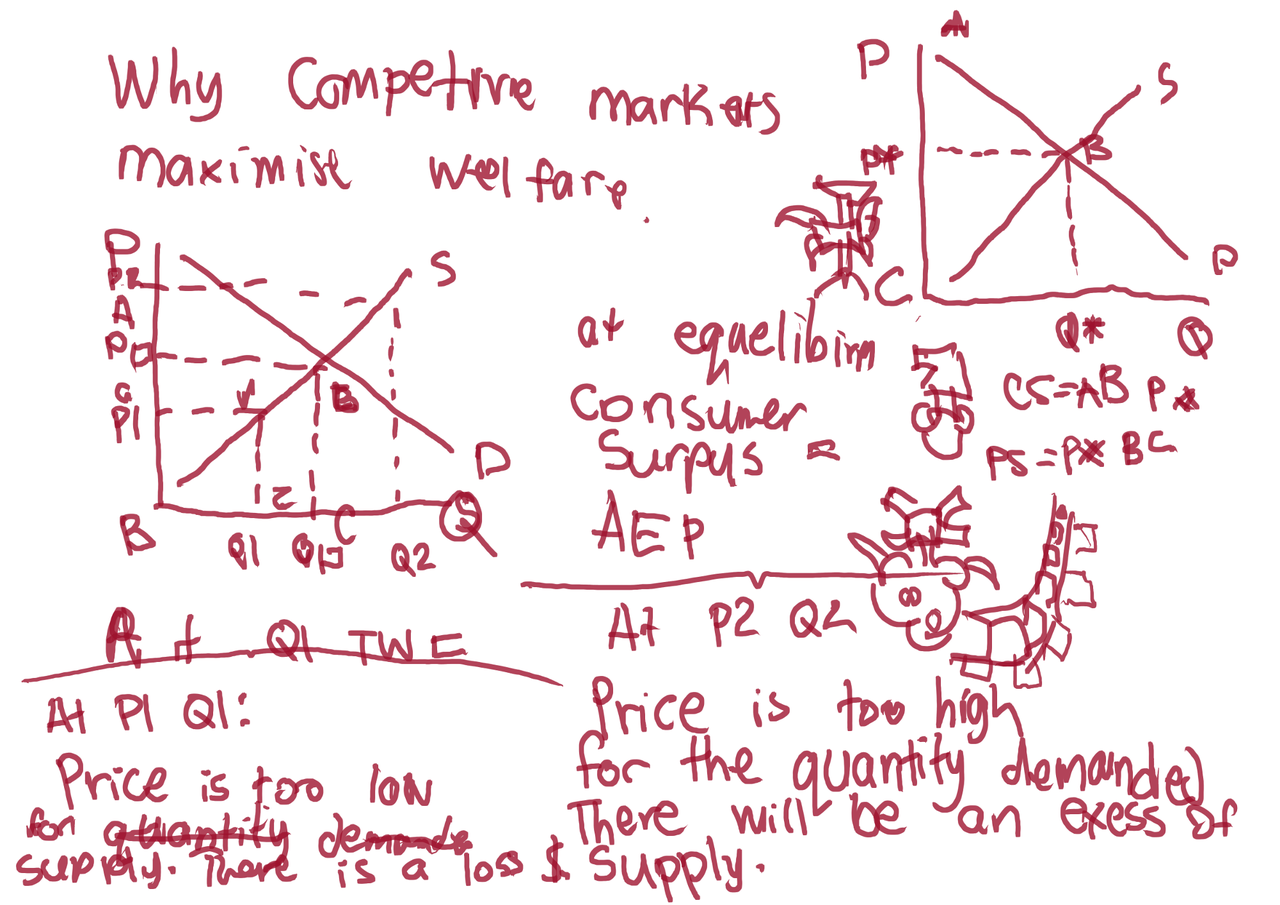 Why Competive markets
maximise welfare.
P
A
S
P*
B
C
D
Q*
Q
P
P2
A
P1
S
B
D
B
C
Q1
Q2
Q
at equelibim
Consumer
Surpus =
AEP
CS=AB P*
PS=P* BC
At Q1 TWE
At P1 Q1:
Price is too low
for quantity demande
supply. There is a loss $
At P2 Q2
Price is too high
for the quantity demanded
There will be an exess of
Supply.